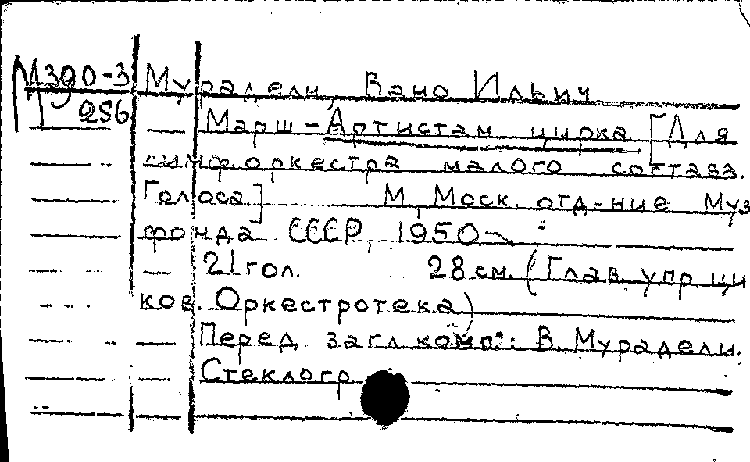 М390-3 Мурадели, Вано Ильич
286 Марш-Артистам цирка [Для
симф. оркестра малого состава.
Голоса] М., Моск. отд-ние Муз
фонда СССР, 1950
21 гол. 28 см. (Глав. упр. ци
ков. Оркестротека)
Перед загл. комп.: В. Мурадели.
Стеклогр.